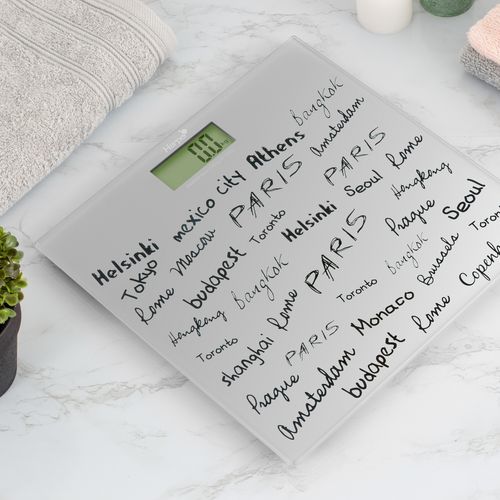 0.0
Bangkok
Helsinki mexico city Athens Amsterdam
Tokyo PARIS PARIS Rome
Rome Moscow Toronto Seoul Hongkong
budapest Helsinki Prague Seoul
Hongkong Bangkok PARIS Bangkok Toronto
Toronto Rome Toronto Brussada
shanghai PARIS Monaco Copenh
Prague Amsterdam budapest Rome